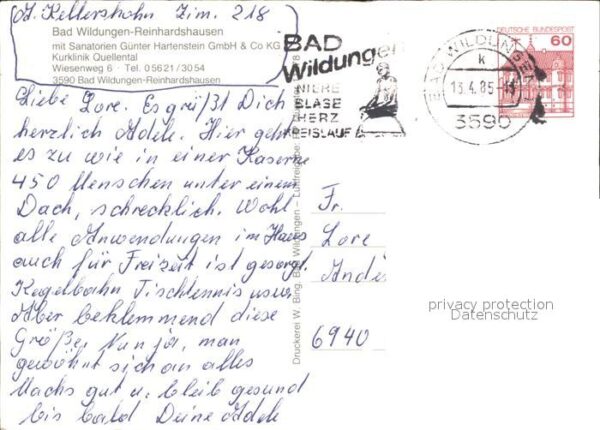 A. Kellershohn Zim. 218
Bad Wildungen-Reinhardshausen
mit Sanatorien Günter Hartenstein GmbH & Co KG
Kurklinik Quellental
Wiesenweg 6 · Tel. 05621/3054
3590 Bad Wildungen-Reinhardshausen
Liebe Lore. Es grüßt Dich
herzlich Adele. Hier geht
es zu wie in einer Kaserne
450 Menschen unter einem
Dach, schrecklich. Wohl
alle Anwendungen im Haus
auch für Freizeit ist gesorgt.
Kegelbahn Tischtennis usw.
Aber beklemmend diese
Größe. Nun ja, man
gewöhnt sich an alles
Machs gut u. bleib gesund
bis bald Deine Adele
Druckerei W. Bing, Bad Wildungen – Luftfreigabe:
BAD
Wildungen
NIERE
BLASE
HERZ
KREISLAUF
BAD WILDUNGEN
k
13.4.85
3590
DEUTSCHE BUNDESPOST
60
Fr.
Lore
André
6940
privacy protection
Datenschutz